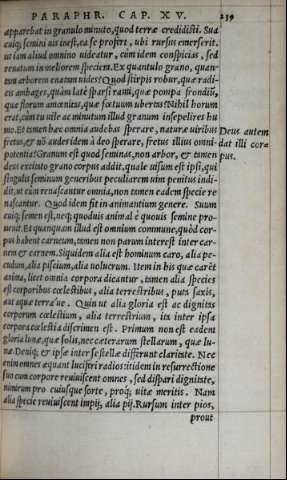 PARAPHR. CAP. XV. 239
apparebat in granulo minuto, quod terræ credidisti. Sua
cuiq; semini uis inest, ea se profert, ubi rursus emerserit.
ut iam aliud omnino uideatur, cùm idem conspicias, sed
renatum in meliorem speciem. Ex quantulo grano, quan-
tam arborem enatam uides? Quod stirpis robur, quæ radi-
cis ambages, quàm latè sparsi rami, quæ pompa frondiũ,
quæ florum amœnitas, quæ fœtuum ubertas? Nihil horum
erat, cùm tu uile ac minutum illud granum insepelires hu
mo. Et tamen hæc omnia audebas sperare, naturæ uiribus
fretus, & nõ audes idem à deo sperare, fretus illius omni-
potentia? Granum est quod seminas, non arbor, & tamen
deus exciusto grano corpus addit, quale uisum est ipsi, qui
singulis seminum generibus peculiarem uim penitus indi-
dit, ut cùm renascantur omnia, non tamen eadem specie re
nascantur. Quod idem fit in animantium genere. Suum
cuiq; semen est, neq; quoduis animal è quouis semine pro-
uenit. Et quanquam illud est omnium commune, quòd cor-
pus habent carneum, tamen non parum interest inter car-
nem & carnem. Siquidem alia est hominum caro, alia pe-
cudum, alia piscium, alia uolucrum. Item in his quæ carẽt
anima, licet omnia corpora dicantur, tamen alia species
est corporibus cœlestibus, alia terrestribus, puta saxis,
aut aquæ terræ'ue. Quin ut alia gloria est ac dignitas
corporum cœlestium, alia terrestrium, ita inter ipsa
corpora cœlestia discrimen est. Primum non est eadem
gloria lunæ, quæ solis, nec cæterarum stellarum, quæ lu-
næ. Deniq; & ipsæ inter se stellæ differunt claritate. Nec
enim omnes æquant luciferi radios: itidem in resurrectione
suo cum corpore reuiuiscent omnes, sed dispari dignitate,
nimirum pro cuiusque sorte, proq́; uitæ meritis. Nam
alia specie reuiuiscent impij, alia pij. Rursum inter pios,
prout
Deus autem
dat illi cor⸗
pus.